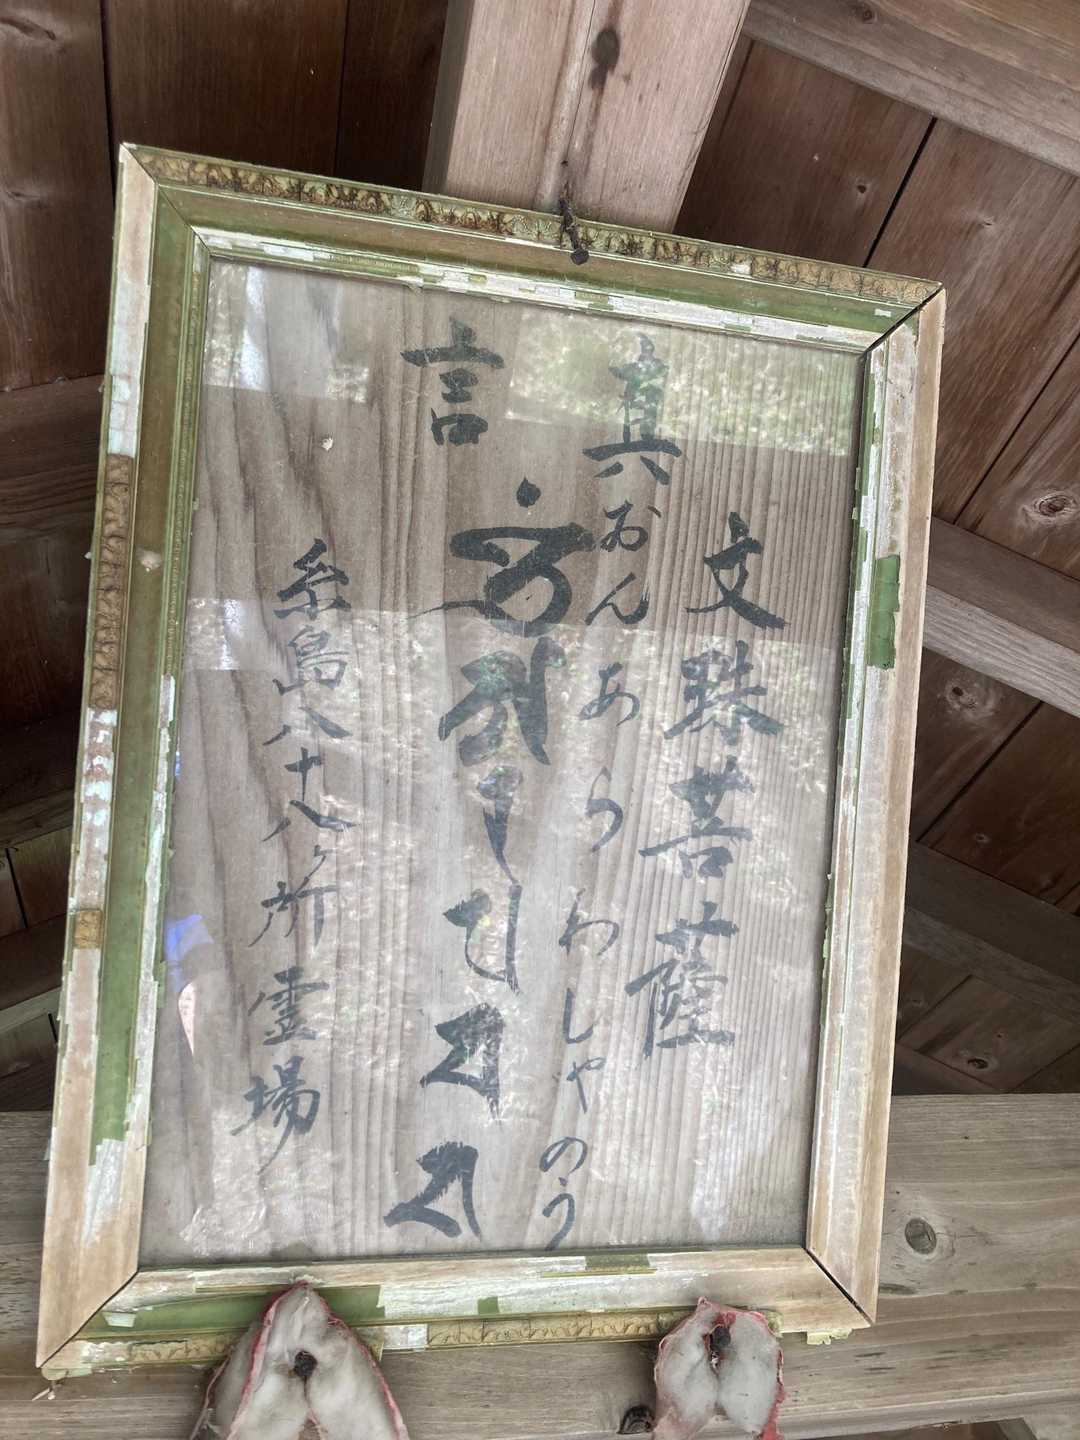 文殊菩薩
真言
おん あらわしゃのう
𑖌𑖼𑖀𑖨𑖢𑖓𑖡
糸島八十八ヶ所霊場